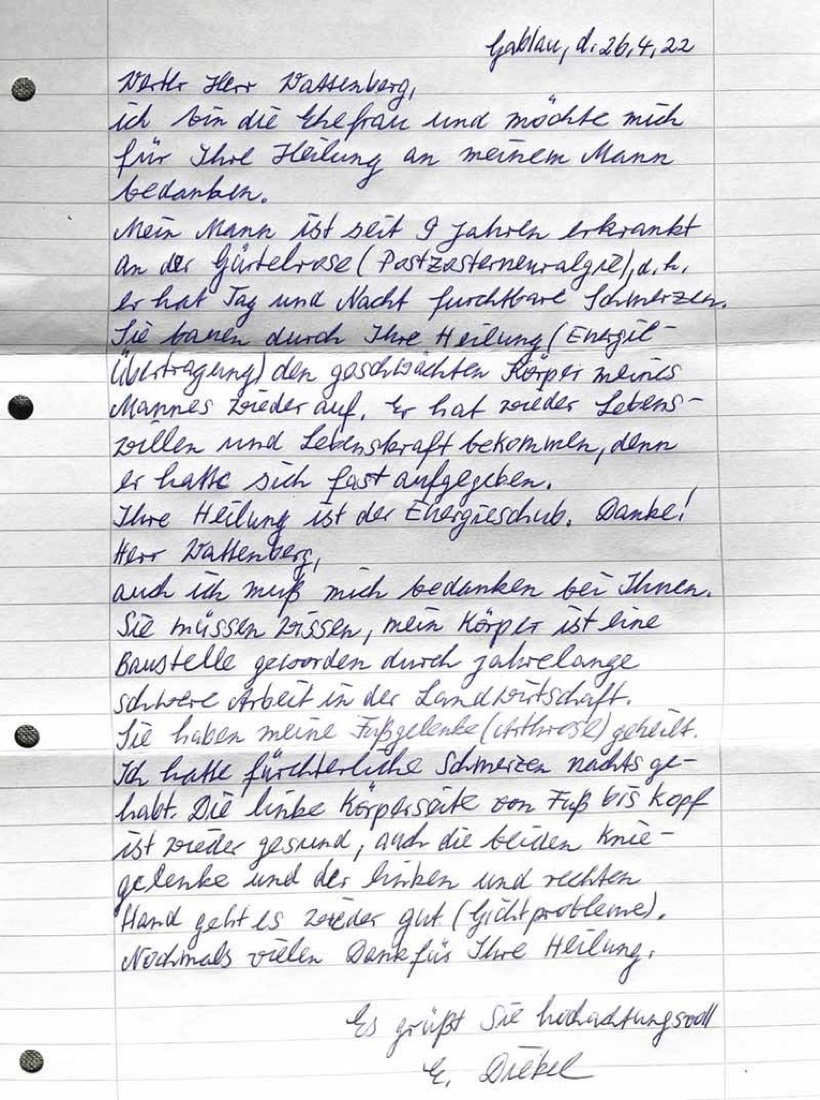 Gablau, d. 26,4,22
Werter Herr Wattenberg,
ich bin die Ehefrau und möchte mich
für Ihre Heilung an meinem Mann
bedanken.
Mein Mann ist seit 9 Jahren erkrankt
an der Gürtelrose (Postzosterneuralgie), d. h.
er hat Tag und Nacht furchtbare Schmerzen.
Sie bauen durch Ihre Heilung (Energie-
Übertragung) den geschwächten Körper meines
Mannes wieder auf. Er hat wieder Lebens-
willen und Lebenskraft bekommen, denn
er hatte sich fast aufgegeben.
Ihre Heilung ist der Energieschub. Danke!
Herr Wattenberg,
auch ich muß mich bedanken bei Ihnen.
Sie müssen wissen, mein Körper ist eine
Baustelle geworden durch jahrelange
schwere Arbeit in der Landwirtschaft.
Sie haben meine Fußgelenke (Arthrose) geheilt.
Ich hatte fürchterliche Schmerzen nachts ge-
habt. Die linke Körperseite von Fuß bis Kopf
ist wieder gesund, auch die beiden Knie-
gelenke und der linken und rechten
Hand geht es wieder gut (Gichtprobleme).
Nochmals vielen Dank für Ihre Heilung.
Es grüßt Sie hochachtungsvoll
E. Diebel